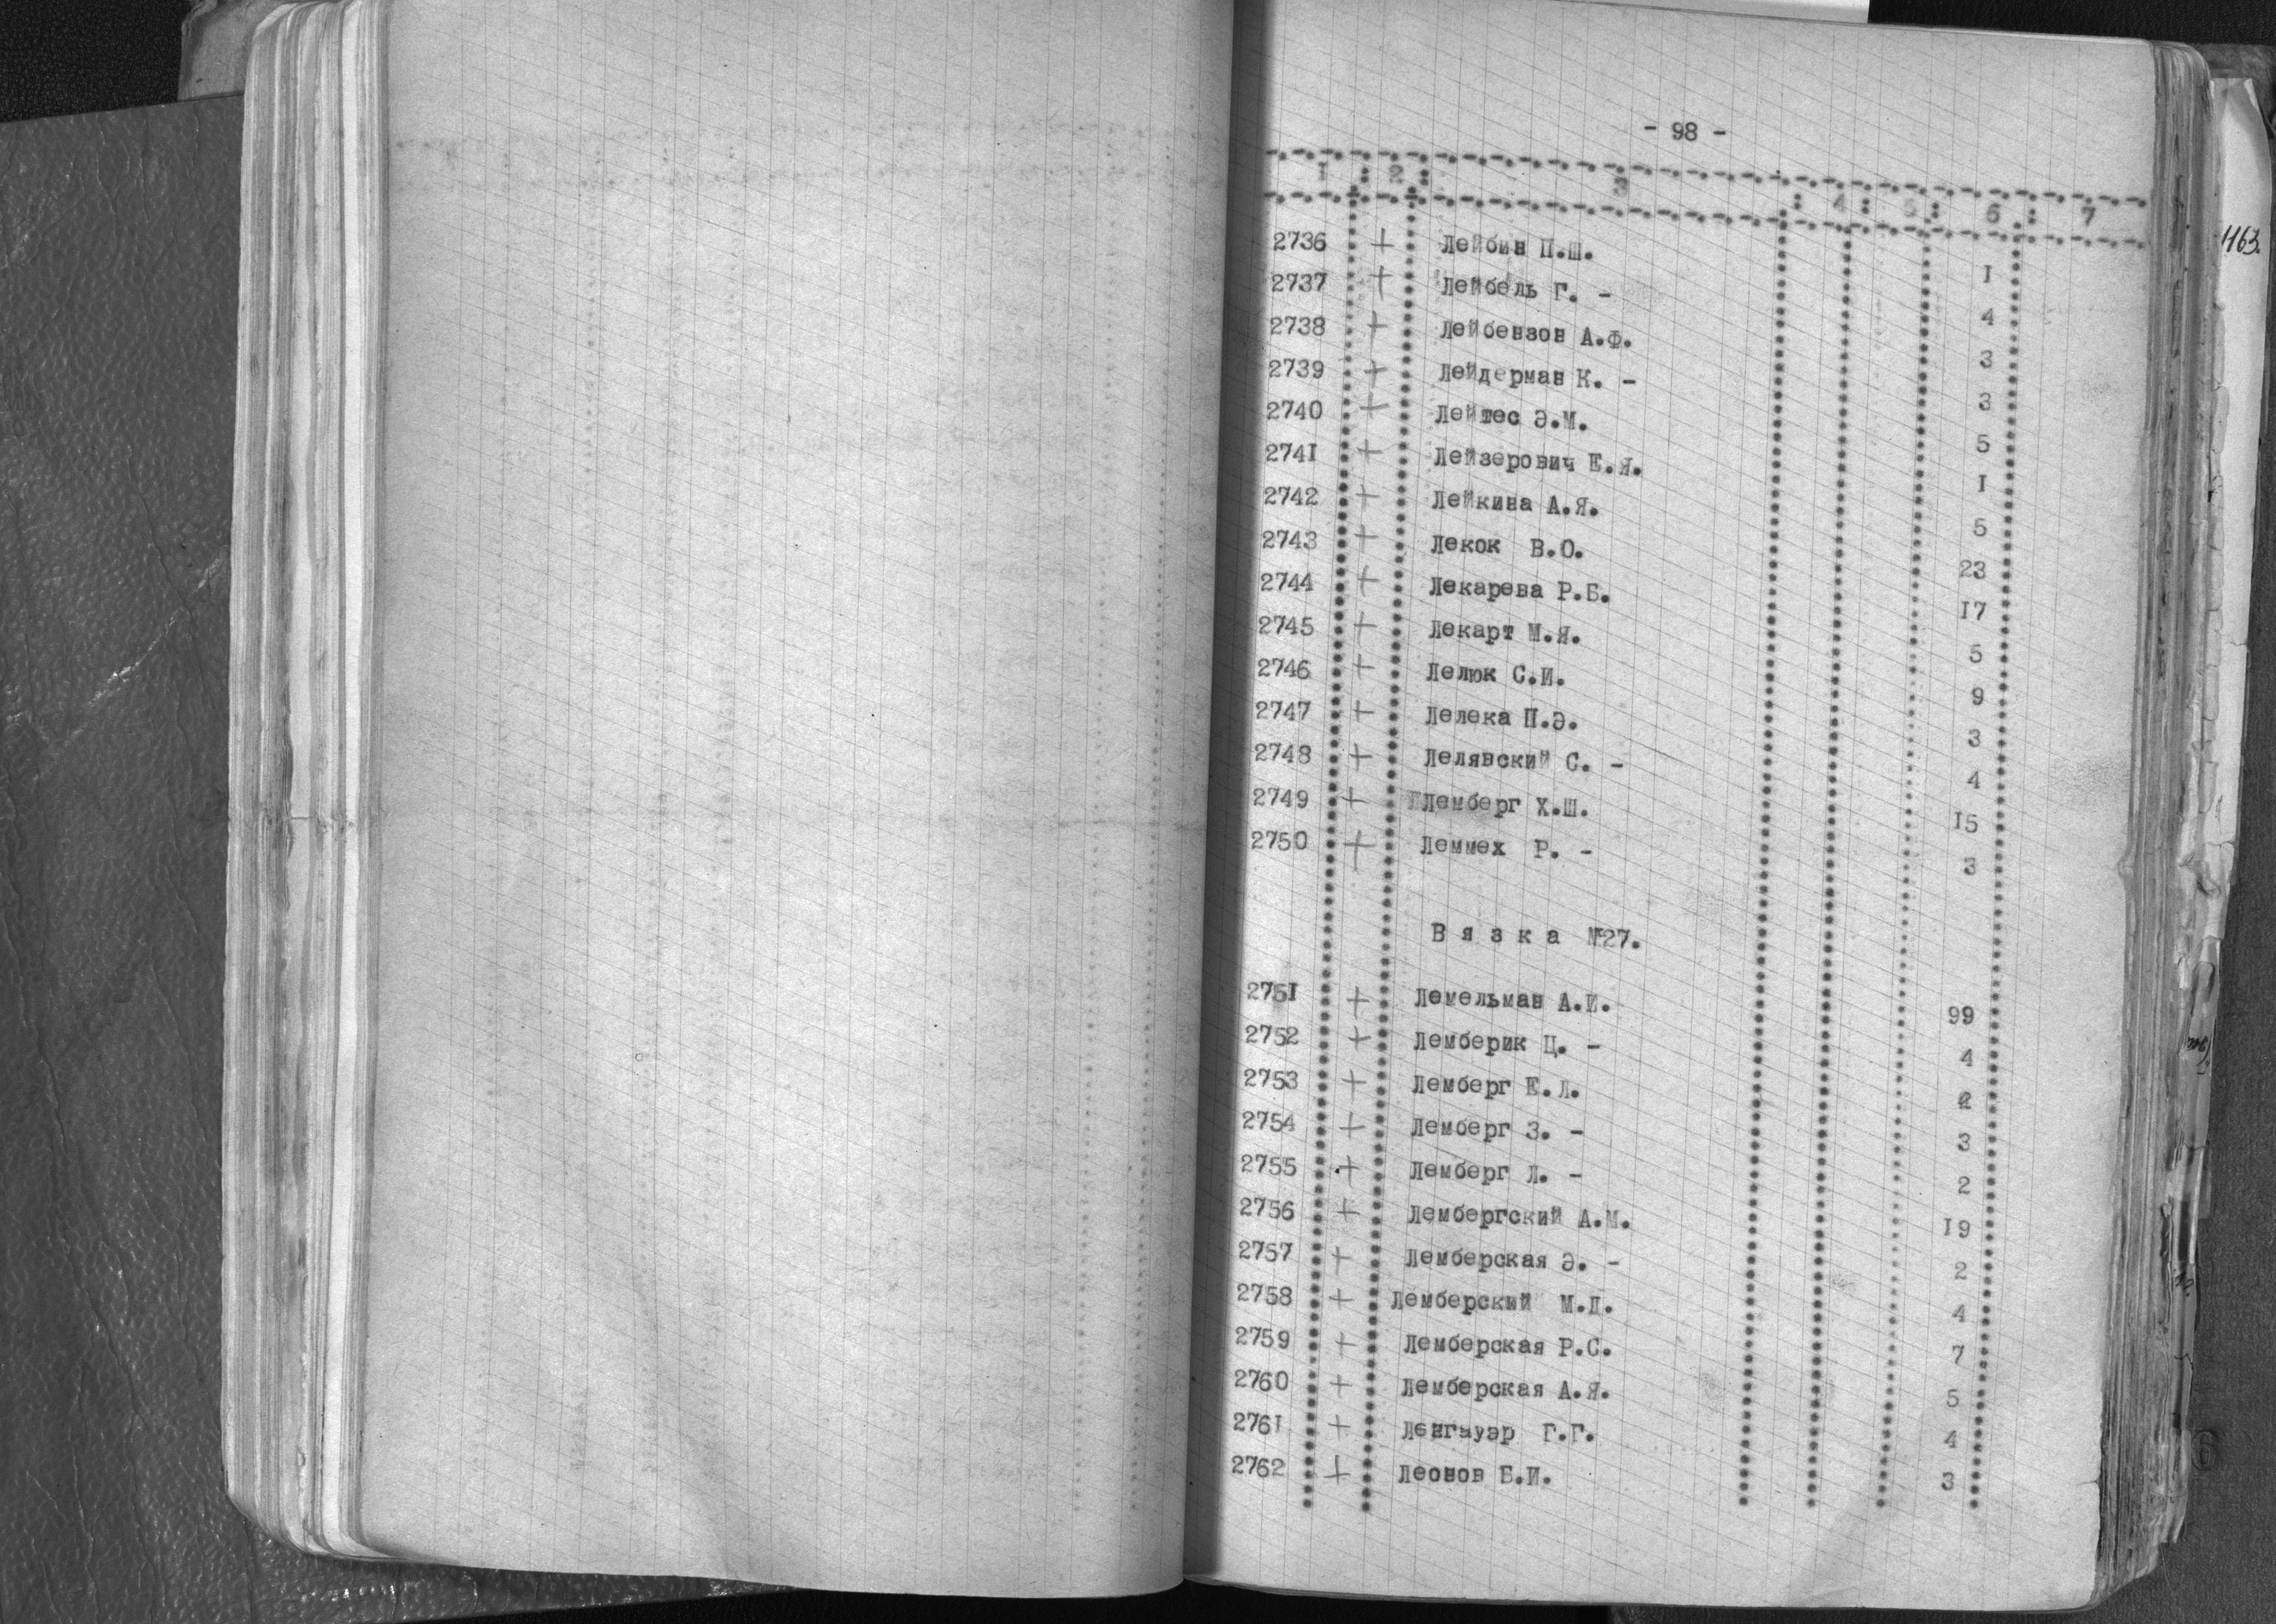 - 98 -
1 : 2 : 3 : 4 : 5 : 6 : 7
2736 + Лейбин П.Ш. I
2737 + Лейбель Г. - 4
2738 + Лейбензон А.Ф. 3
2739 + Лейдерман К. - 3
2740 + Лейтес Э.М. 5
274I + Лейзерович Е.Я. I
2742 + Лейкина А.Я. 5
2743 + Лекок В.О. 23
2744 + Лекарева Р.Б. I7
2745 + Лекарт М.Я. 5
2746 + Лелюк С.И. 9
2747 + Лелека П.Э. 3
2748 + Лелявский С. - 4
2749 + Лемберг Х.Ш. I5
2750 + Леммех Р. - 3
В я з к а №27.
275I + Лемельман А.И. 99
2752 + Лемберик Ц. - 4
2753 + Лемберг Е.Л. 2
2754 + Лемберг З. - 3
2755 + Лемберг Л. - 2
2756 + Лембергский А.М. I9
2757 + Лемберская Э. - 2
2758 + Лемберский М.Д. 4
2759 + Лемберская Р.С. 7
2760 + Лемберская А.Я. 5
276I + Ленгауэр Г.Г. 4
2762 + Леонов Б.И. 3
1163.